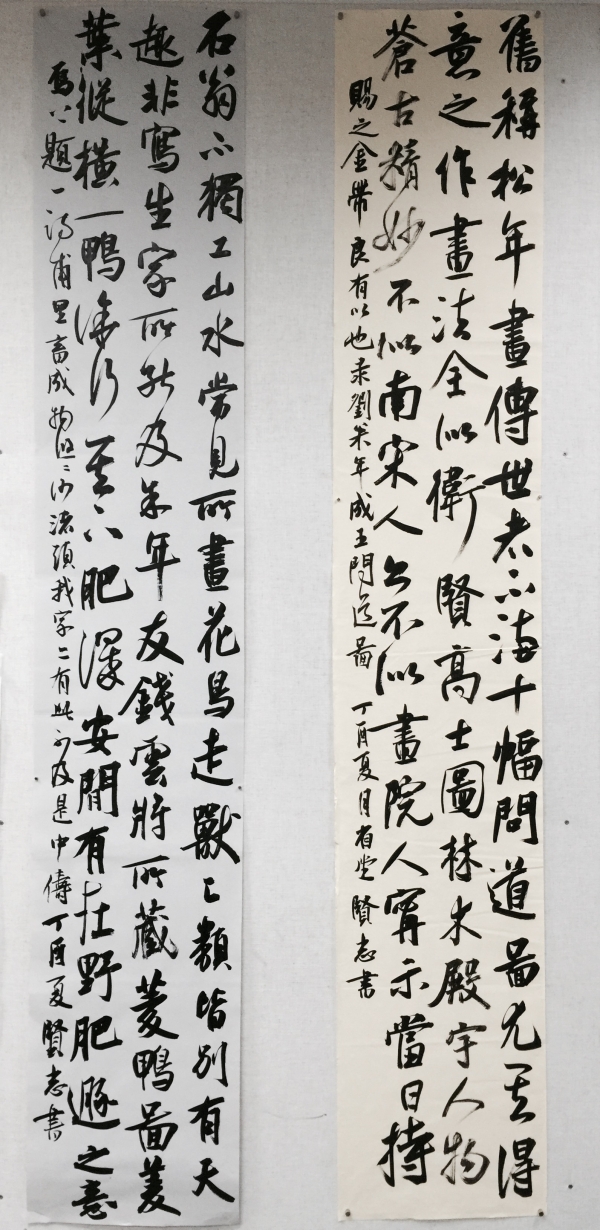 舊稱松年畫傳世者不滿十幅問道圖尤其得
意之作畫法全似衛賢高士圖林木殿宇人物
蒼古精妙不似南宋人亦不似畫院人寧宗當日特
賜之金帶良有以也录劉松年成王問道圖 丁酉夏月 賢志書
石翁不獨工山水常見所畫花鳥走獸之類皆别有天
趣非寫生家所能及余年友錢雲將所藏菱鴨圖菱
葉縱橫一鴨 其下肥澤安閒有在野肥遯之意
爲之題一詩甫里畜成物 我家亦有此 是中儔丁酉夏賢志書